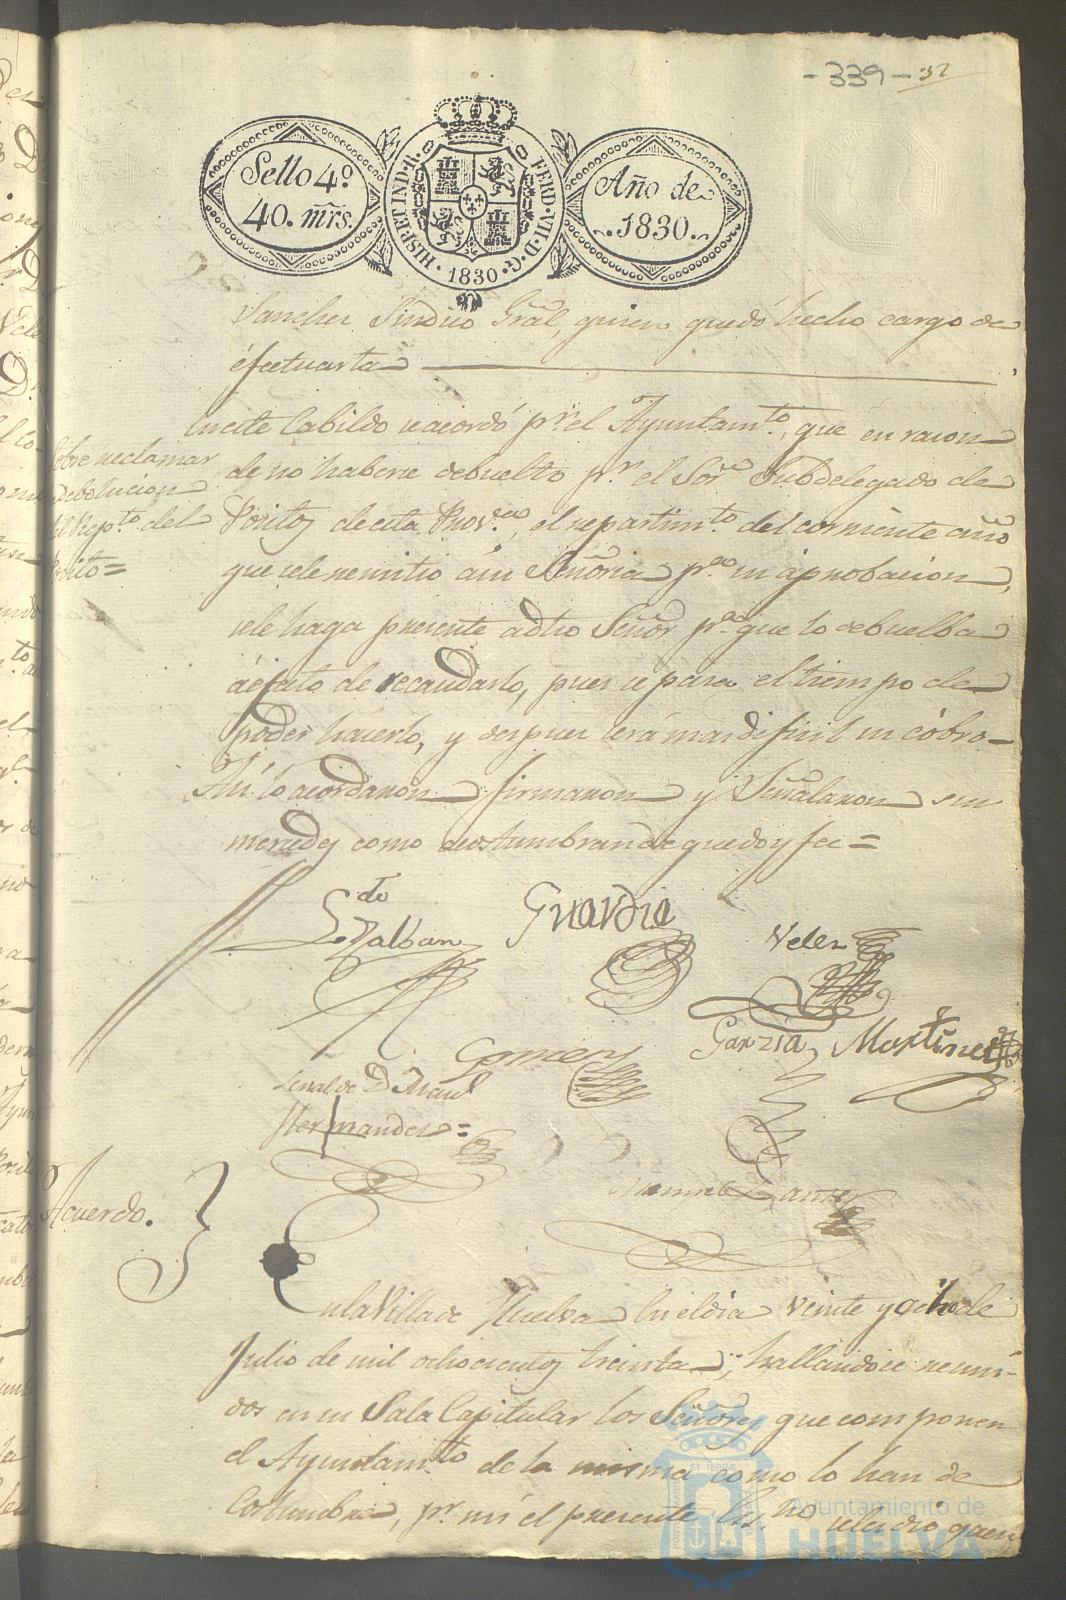 -339- 32
Sello 4º
40. mrs.
HISP.ET IND.R. FERD.VII.D.G. 1830
Año de
1830.
Sanchez Sindico Gral, quien quedó hecho cargo de
éfectuarla
Sobre reclamar
debolucion
del Rep.to del
Posito=
En este Cabildo se acordó p.r el Ayuntam.to, que én razon
de no haberse debuelto p.r el Sor. Subdelegado de
Positos de esta Prov.a, el repartim.to del corriente año
que se le remitio á su Señoria p.a su áprobacion,
se le haga presente a dho Señor p.a que lo debuelba
áefecto de recaudarlo, pues se pasa el tiempo de
poder hacerlo, y despues será mas dificil su cóbro-
Asi lo acordaron firmaron y Señalaron sus
mercedes como acostumbran de que doy fee=
L.do Zalban
Guardia
Velez
Garzia
Martinez
Gomez
Señal de D.
Hernandez=
Acuerdo.
En la Villa de Huelva En el dia Veinte y ocho de
Julio de mil ochocientos treinta, hallandose reuni-
dos en su Sala Capitular los Señores que componen
el Ayuntam.to de la misma como lo han de
Costumbre, p.r mi el presente Es.no se les dió quen
Ayuntamiento de
HUELVA